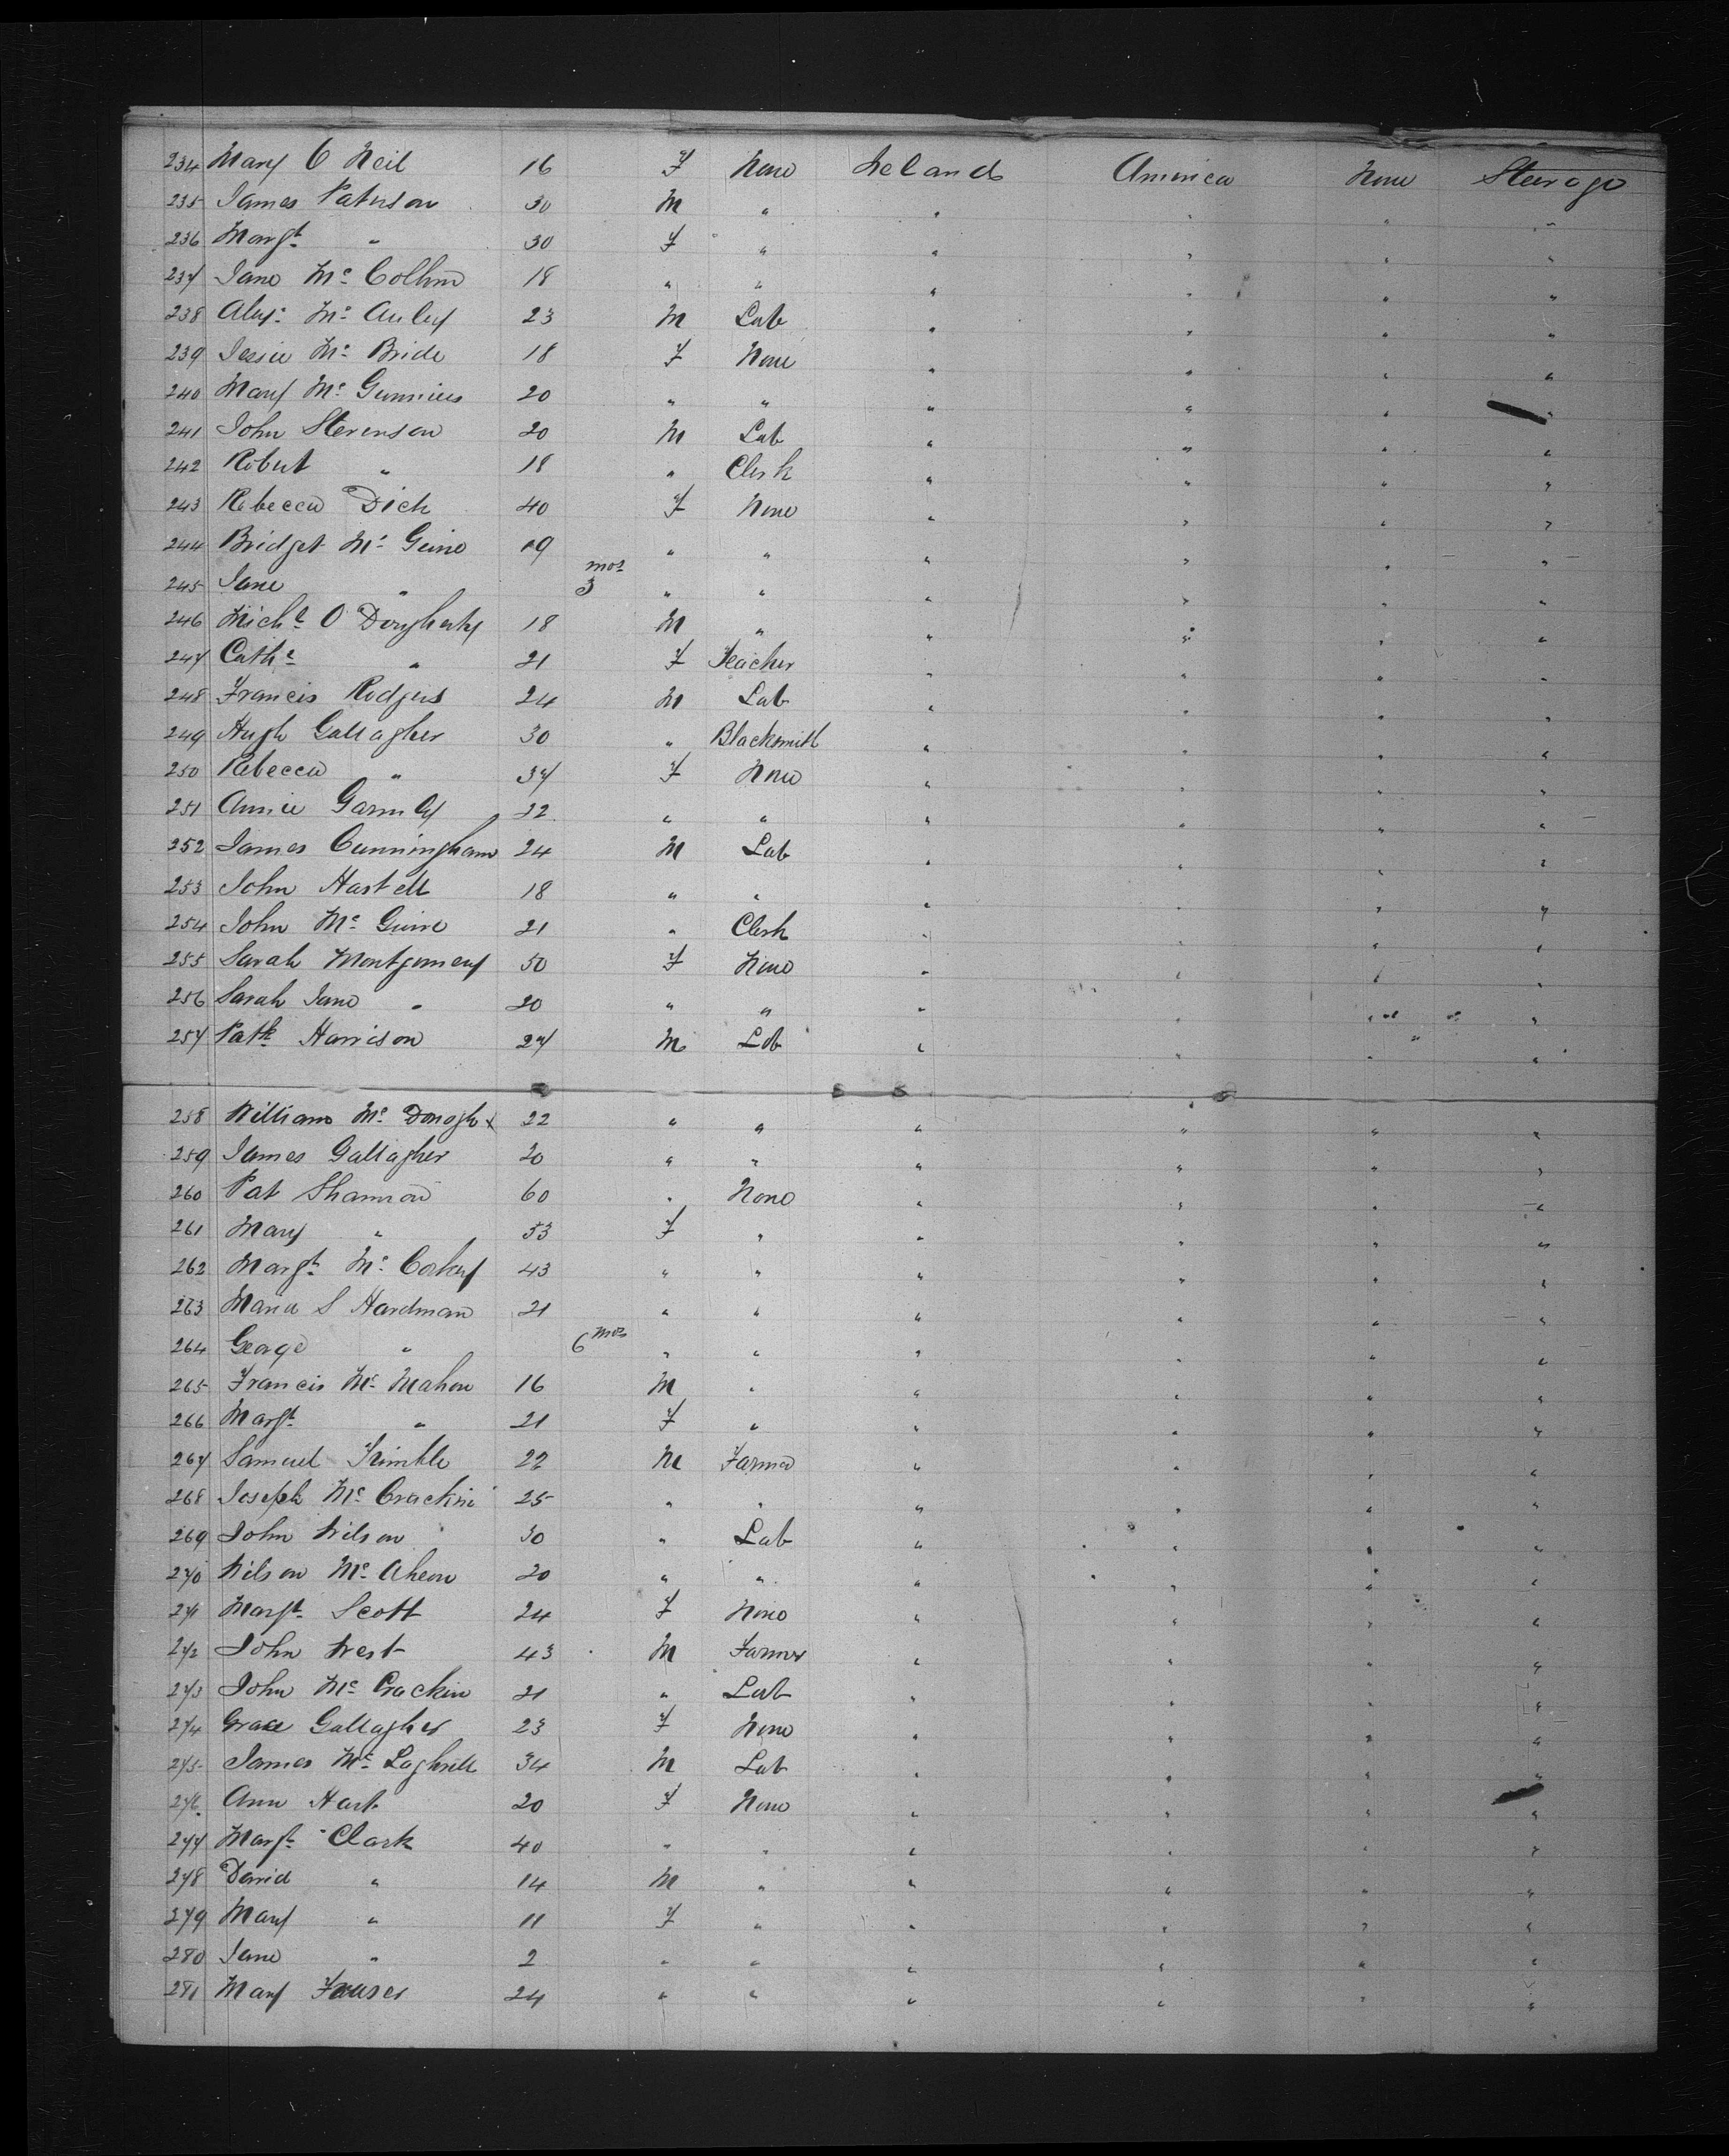 234 Mary O Neil 16 F None Ireland America None Steerage
235 James Paterson 30 M " " " " "
236 Margt " 30 F " " " " "
237 Jane Mc Collum 18 " " " " " "
238 Alexr Mc Auley 23 M Lab " " " "
239 Jessie Mc Bride 18 F None " " " "
240 Mary Mc 20 " " " " " "
241 John Stevenson 20 M Lab " " " "
242 Robert " 18 " Clerk " " " "
243 Rebecca Dick 40 F None " " " "
244 Bridget Mc 19 " " " " " "
245 Jane " 3 mos " " " " " "
246 Michl O Dougherty 18 M " " " " "
247 Cathe " 21 F Teacher " " " "
248 Francis Rodgers 24 M Lab " " " "
249 Hugh Gallagher 30 " Blacksmith " " " "
250 Rebecca " 37 F None " " " "
251 Annie Gormley 22 " " " " " "
252 James Cunningham 24 M Lab " " " "
253 John Hastell 18 " " " " " "
254 John Mc Guire 21 " Clerk " " " "
255 Sarah Montgomery 50 F None " " " "
256 Sarah Jane " 20 " " " " " "
257 Patk Harrison 27 M Lab " " " "
258 William Mc Donogh x 22 " " " " " "
259 James Gallagher 20 " " " " " "
260 Pat Shannon 60 " None " " " "
261 Mary " 53 F " " " " "
262 Margt Mc Corkey 43 " " " " " "
263 Maria S Hardman 21 " " " " " "
264 George " 6 mos " " " " " "
265 Francis Mc Mahon 16 M " " " " "
266 Margt " 21 F " " " " "
267 Samuel Trimble 22 M Farmer " " " "
268 Joseph Mc Crackin 25 " " " " " "
269 John Wilson 30 " Lab " " " "
270 Wilson Mc Aheon 20 " " " " " "
271 Margt Scott 24 F None " " " "
272 John West 43 M Farmer " " " "
273 John Mc Crackin 21 " Lab " " " "
274 Grace Gallagher 23 F None " " " "
275 James Mc 34 M Lab " " " "
276 Ann Hart 20 F None " " " "
277 Margt Clark 40 " " " " " "
278 David " 14 M " " " " "
279 Mary " 11 F " " " " "
280 Jane " 2 " " " " " "
281 Mary 24 " " " " " "